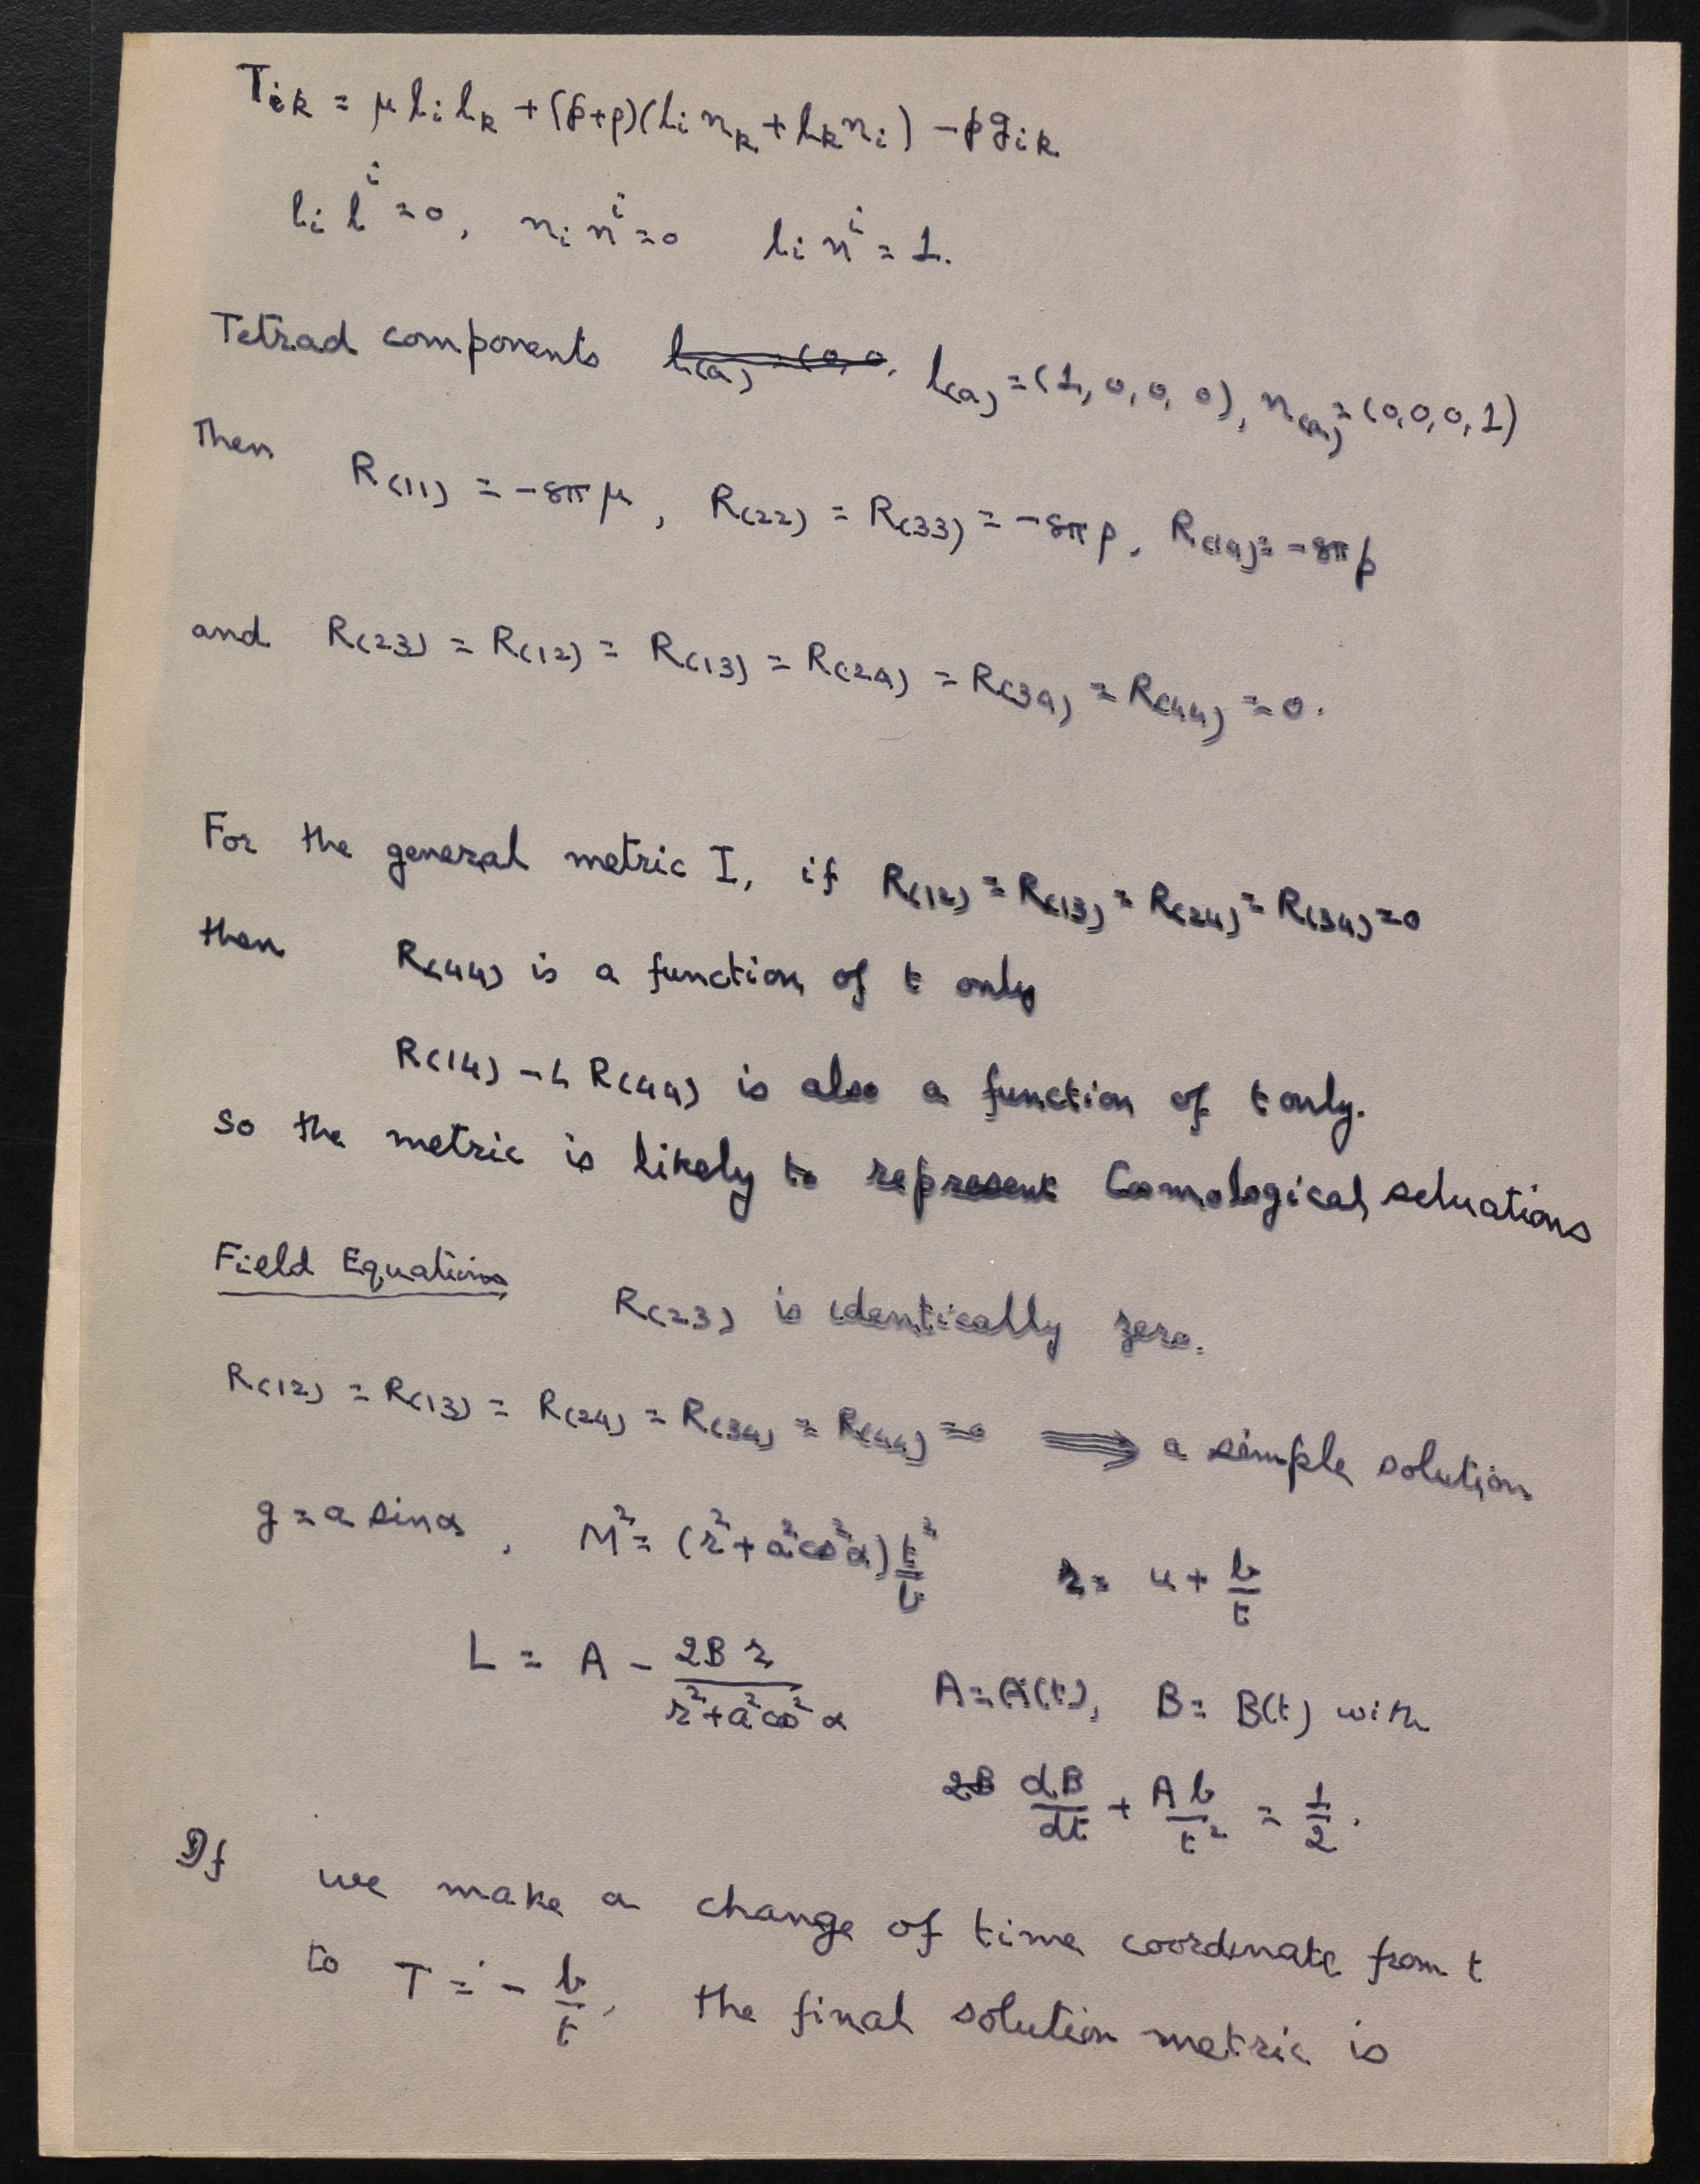 T_{ik} = μ l_i l_k + (p+ρ)(l_i n_k + l_k n_i) − p g_{ik}
l_i l^i = 0, n_i n^i = 0 l_i n^i = 1.
Tetrad components l_{(a)} = (0, 0, l_{(a)} = (1, 0, 0, 0), n_{(a)} = (0, 0, 0, 1)
Then R_{(11)} = −8πμ, R_{(22)} = R_{(33)} = −8πρ, R_{(14)} = −8πp
and R_{(23)} = R_{(12)} = R_{(13)} = R_{(24)} = R_{(34)} = R_{(44)} = 0.
For the general metric I, if R_{(12)} = R_{(13)} = R_{(24)} = R_{(34)} = 0
then R_{(44)} is a function of t only
R_{(14)} − L R_{(44)} is also a function of t only.
so the metric is likely to represent Comological situations
Field Equations R_{(23)} is identically zero.
R_{(12)} = R_{(13)} = R_{(24)} = R_{(34)} = R_{(44)} = 0 ⟹ a simple solution
g = a sin α, M² = (r² + a² cos² α) t²/b r = u + b/t
L = A − 2B r / (r² + a² cos² α) A = A(t), B = B(t) with
2B dB/dt + A b/t² = 1/2.
If we make a change of time coordinate from t
to T = − b/t, the final solution metric is